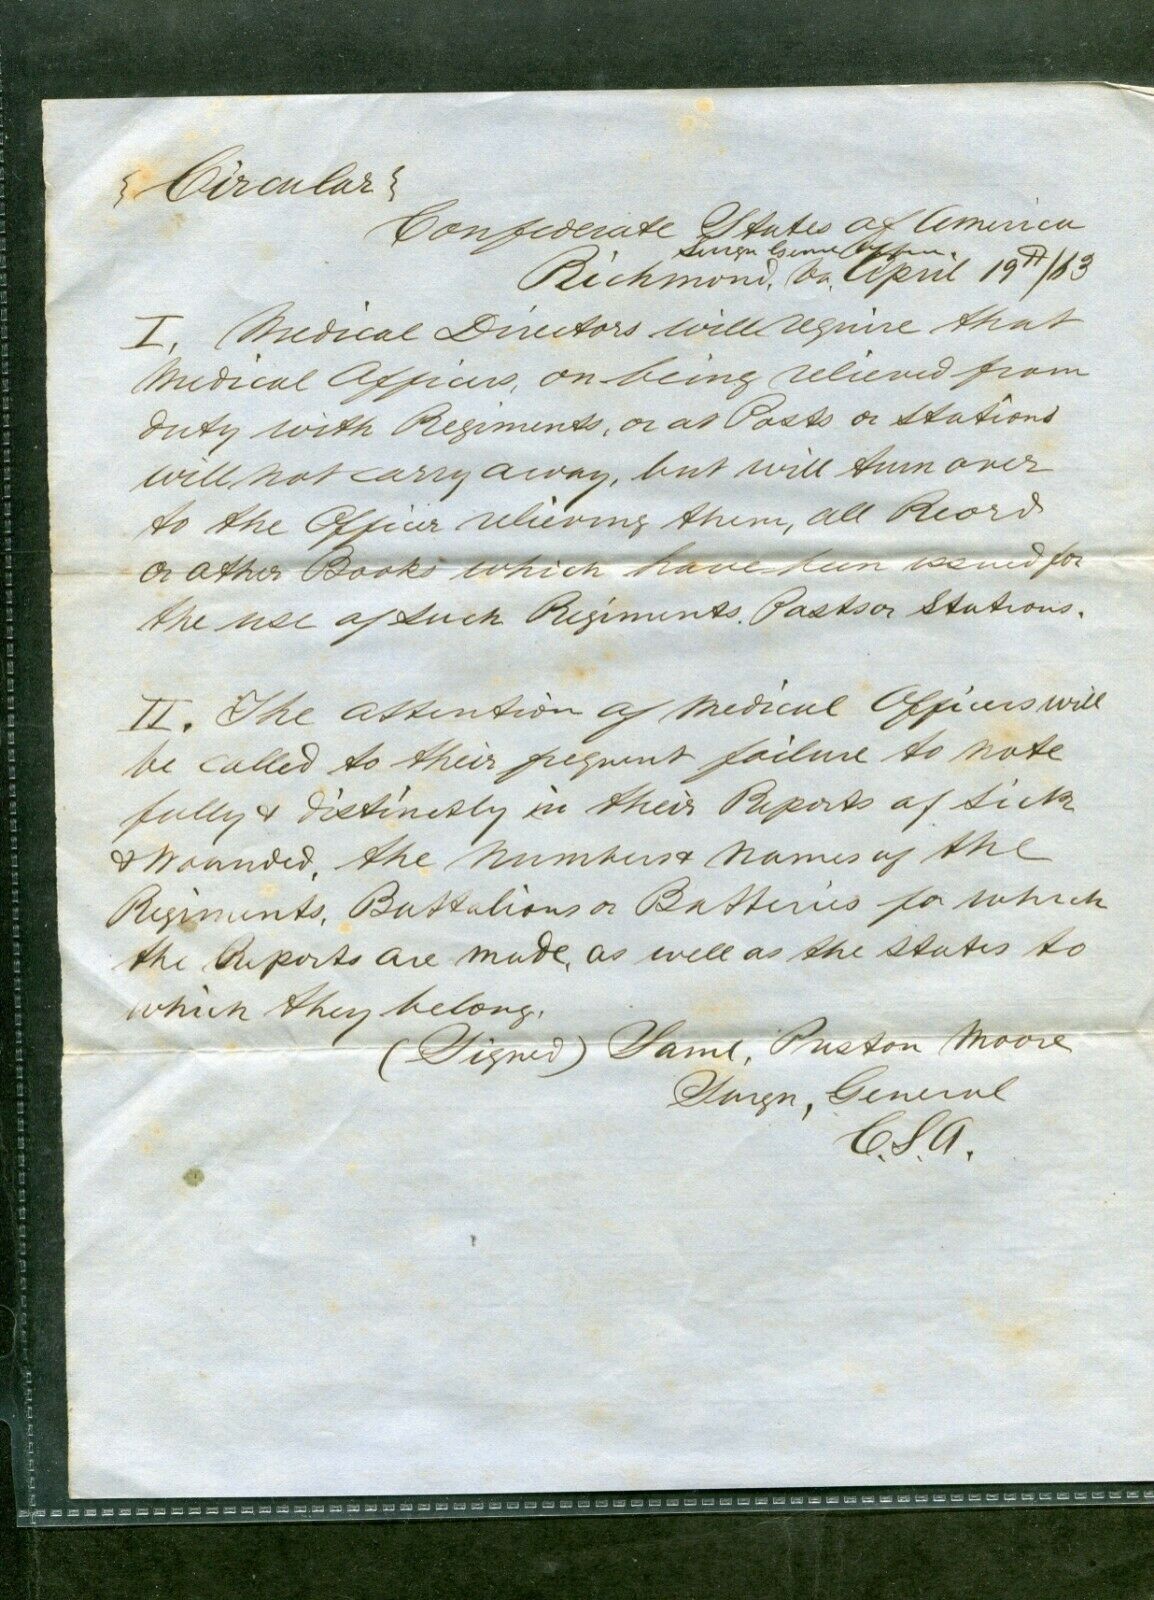 { Circular }
Confederate States of America
Surgn Genl Office.
Richmond, Va, April 19th/63
I. Medical Directors will require that
Medical Officers, on being relieved from
duty with Regiments, or at Posts or Stations
will not carry away, but will turn over
to the Officer relieving them, all Record
or other Books which have been issued for
the use of such Regiments, Posts or Stations.
II. The attention of Medical Officers will
be called to their frequent failure to note
fully & distinctly in their Reports of Sick
& Wounded, the numbers & names of the
Regiments, Battalions or Batteries for which
the Reports are made, as well as the States to
which they belong.
(Signed) Saml. Preston Moore
Surgn, General
C.S.A.